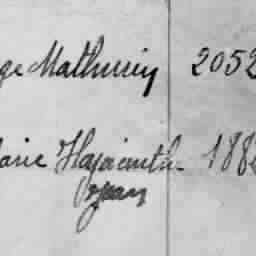 ge Mathurin 2052
arie Hyacinthe 188